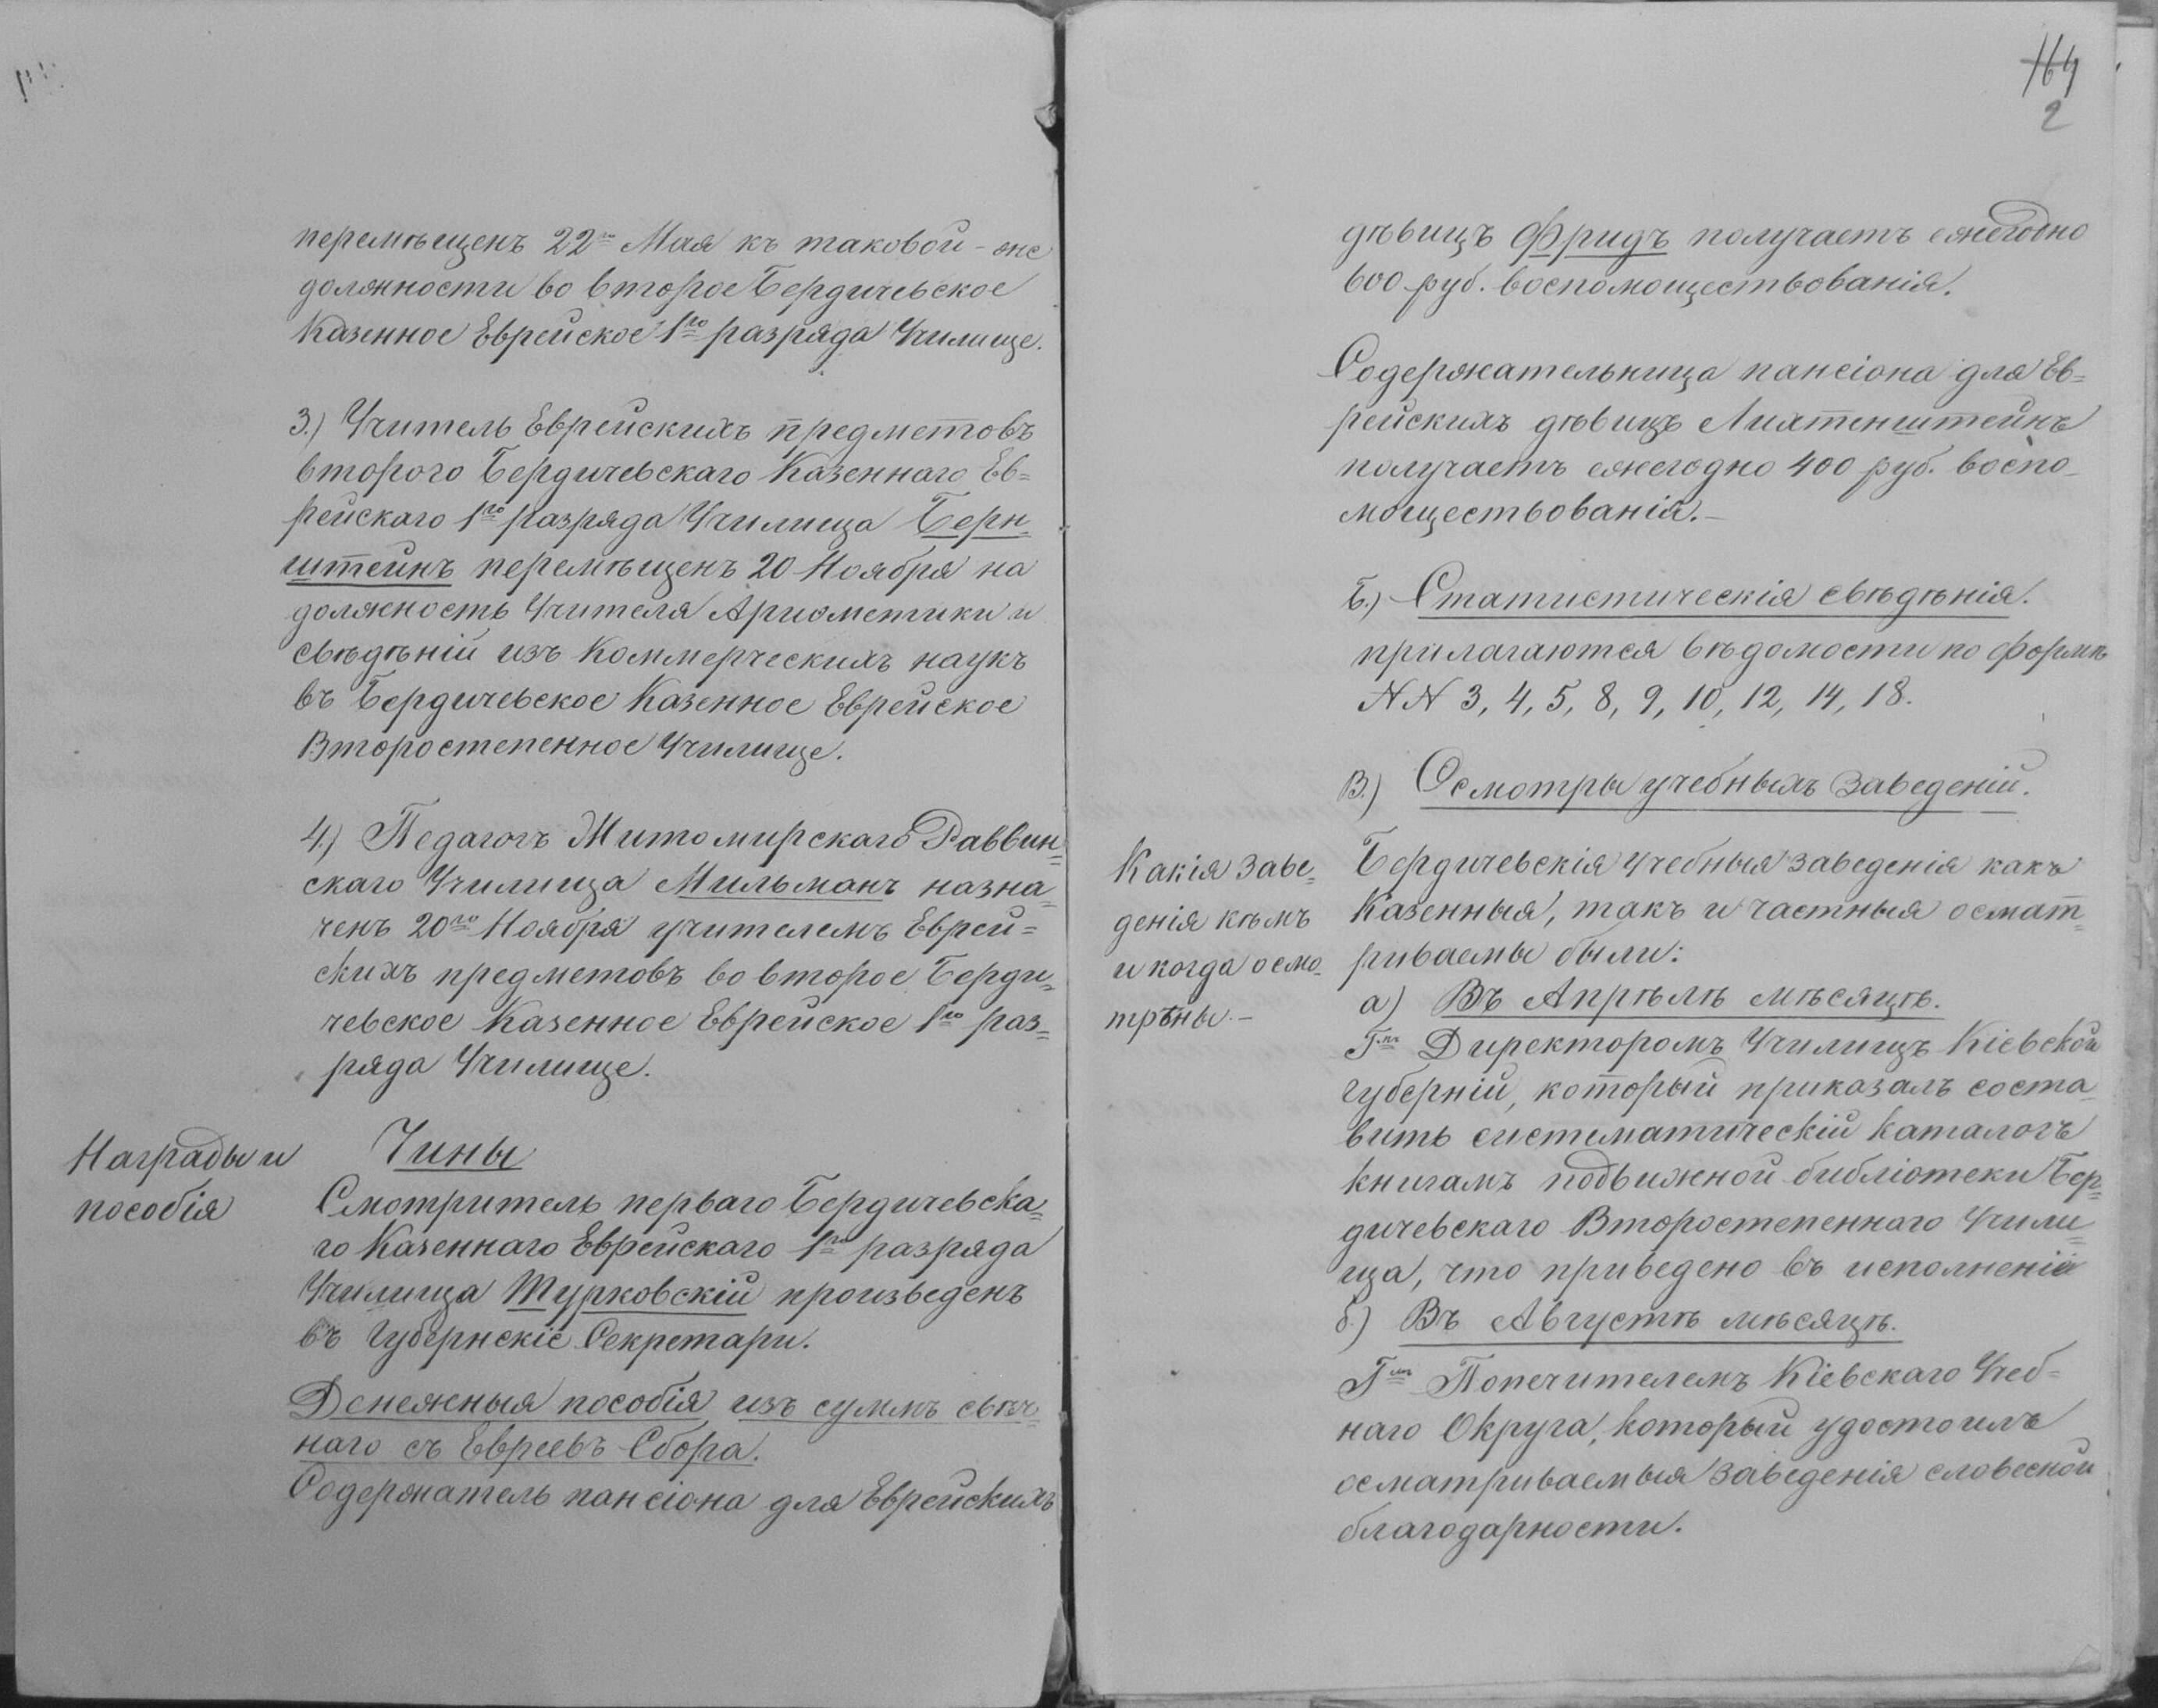 перемѣщенъ 22го Мая къ таковой-же
должности во второе Бердичевское
Казенное Еврейское 1го разряда Училище.
3.) Учитель Еврейскихъ предметовъ
второго Бердичевскаго Казеннаго Ев=
рейскаго 1го разряда Училища Берн=
штейнъ перемѣщенъ 20 Ноября на
должность Учителя Ариѳметики и
свѣдѣній изъ Коммерческихъ наукъ
въ Бердичевское Казенное Еврейское
Второстепенное Училище.
4.) Педагогъ Житомирскаго Раввин=
скаго Училища Мильманъ назна=
ченъ 20го Ноября учителемъ Еврей=
скихъ предметовъ во второе Берди=
чевское Казенное Еврейское 1го раз=
ряда Училище.
Награды и
пособія
Чины
Смотритель перваго Бердичевска=
го Казеннаго Еврейскаго 1го разряда
Училища Турковскій произведенъ
въ Губернскіе Секретари.
Денежныя пособія изъ суммъ свѣч=
наго съ Евреевъ Сбора.
Содержатель пансіона для Еврейскихъ
164
2
дѣвицъ Фридъ получаетъ ежегодно
600 руб. воспомоществованія.
Содержательница пансіона для Ев=
рейскихъ дѣвицъ Лихтенштейнъ
получаетъ ежегодно 400 руб. воспо-
моществованія.-
Б.) Статистическія свѣдѣнія.
прилагаются вѣдомости по формѣ
NN 3, 4, 5, 8, 9, 10, 12, 14, 18.
В.) Осмотры учебныхъ заведеній.
Какія заве=
денія кѣмъ
и когда осмо=
трѣны.-
Бердичевскія учебныя заведенія какъ
Казенныя, такъ и частныя осмат=
риваемы были:
а) Въ Апрѣлѣ мѣсяцѣ.
Гмъ Директоромъ Училищъ Кіевской
губерніи, который приказалъ соста=
вить систематическій каталогъ
книгамъ подвижной библіотеки Бер=
дичевскаго Второстепеннаго Учили=
ща, что приведено въ исполненіе
б.) Въ Августѣ мѣсяцѣ.
Гмъ Попечителемъ Кіевскаго Учеб=
наго Округа, который удостоилъ
осматриваемыя заведенія словесной
благодарности.